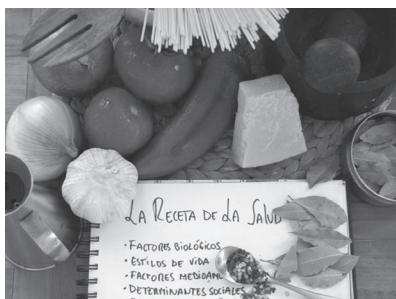 LA RECETA DE LA SALUD
· FACTORES BIOLÓGICOS
· ESTILOS DE VIDA
· FACTORES
· DETERMINANTES SOCIALES